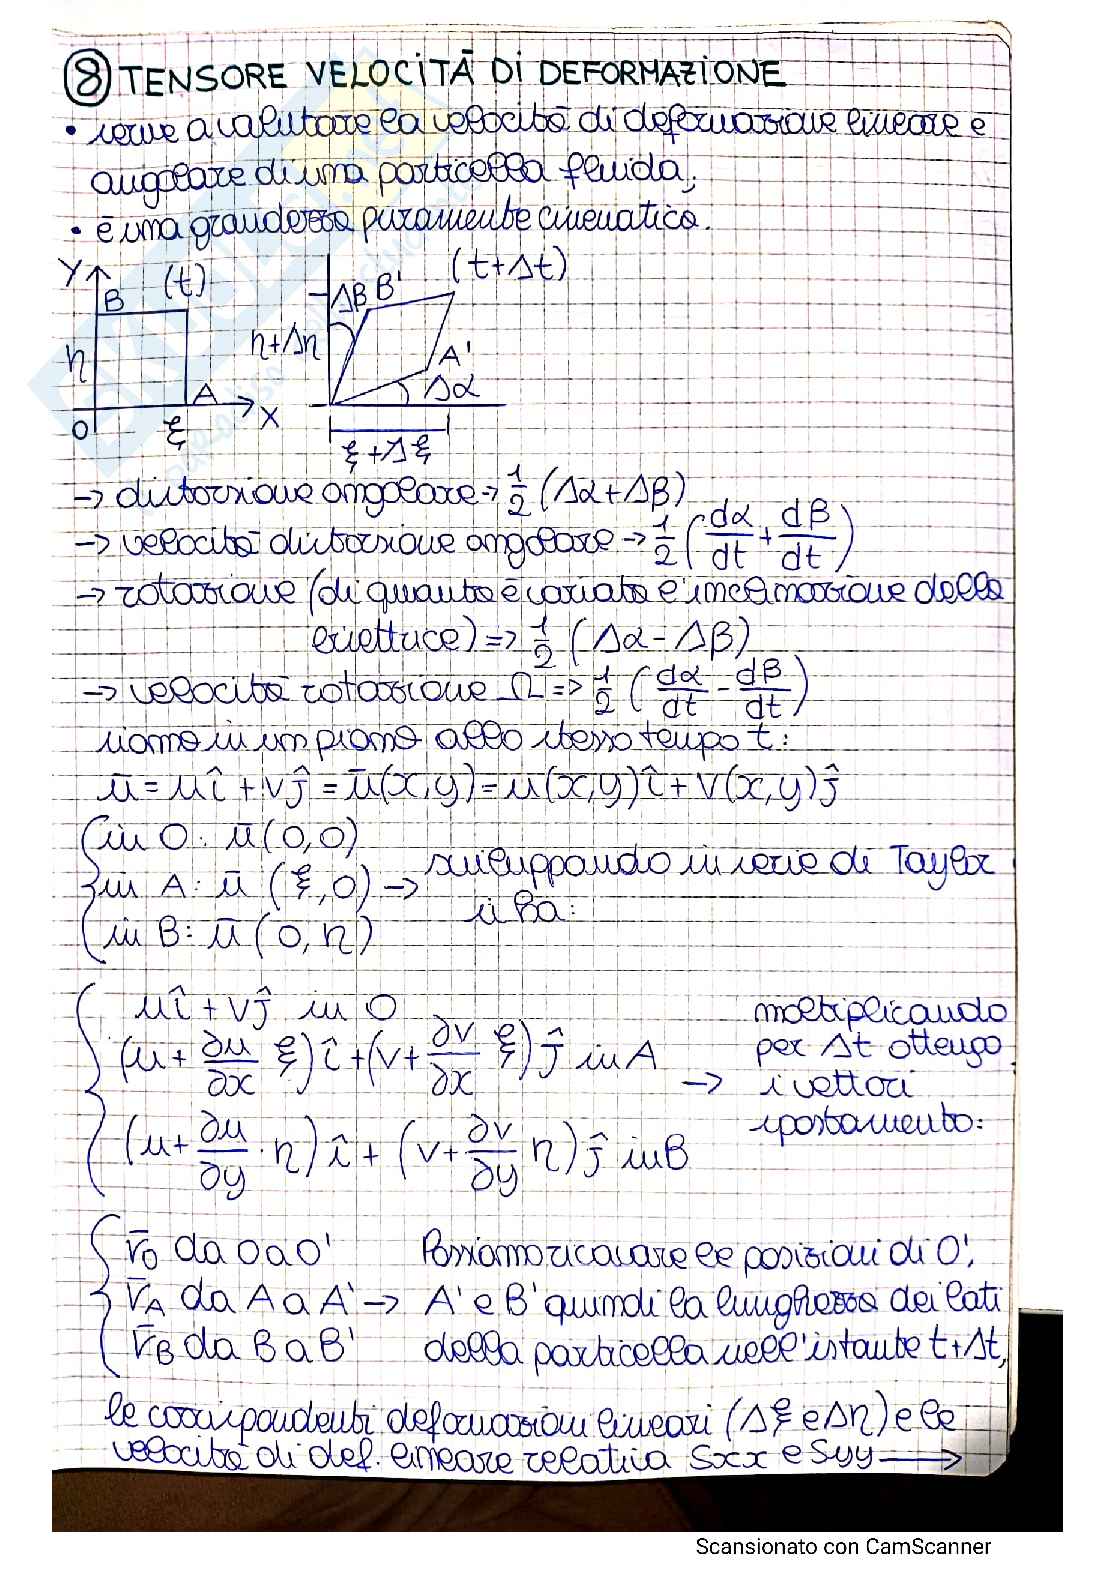 ⑧ TENSORE VELOCITÀ DI DEFORMAZIONE
• serve a valutare la velocità di deformazione lineare e
angolare di una particella fluida;
• è una grandezza puramente cinematica.
Y B (t) ΔB B' (t+Δt)
η η+Δη A'
A Δα
O ξ X
ξ+Δξ
→ distorsione angolare → 1/2 (Δα+Δβ)
→ velocità distorsione angolare → 1/2 (dα/dt + dβ/dt)
→ rotazione (di quanto è variata l'inclinazione della
bisettrice) => 1/2 (Δα - Δβ)
→ velocità rotazione Ω => 1/2 (dα/dt - dβ/dt)
siamo in un piano allo stesso tempo t:
ū = uî + vĵ = ū(x,y) = u(x,y)î + v(x,y)ĵ
in O: ū (0,0)
in A: ū (ξ,0) → sviluppando in serie di Taylor
si ha:
in B: ū (0,η)
uî + vĵ in O
(u + ∂u/∂x ξ)î + (v + ∂v/∂x ξ)ĵ in A
(u + ∂u/∂y · η)î + (v + ∂v/∂y η)ĵ in B
→ moltiplicando
per Δt ottengo
i vettori
spostamento:
r̄O da O a O' Possiamo ricavare le posizioni di O',
r̄A da A a A' → A' e B' quindi la lunghezza dei lati
r̄B da B a B' della particella nell'istante t+Δt,
le corrispondenti deformazioni lineari (Δξ e Δη) e le
velocità di def. lineare relativa Sxx e Syy →
Scansionato con CamScanner